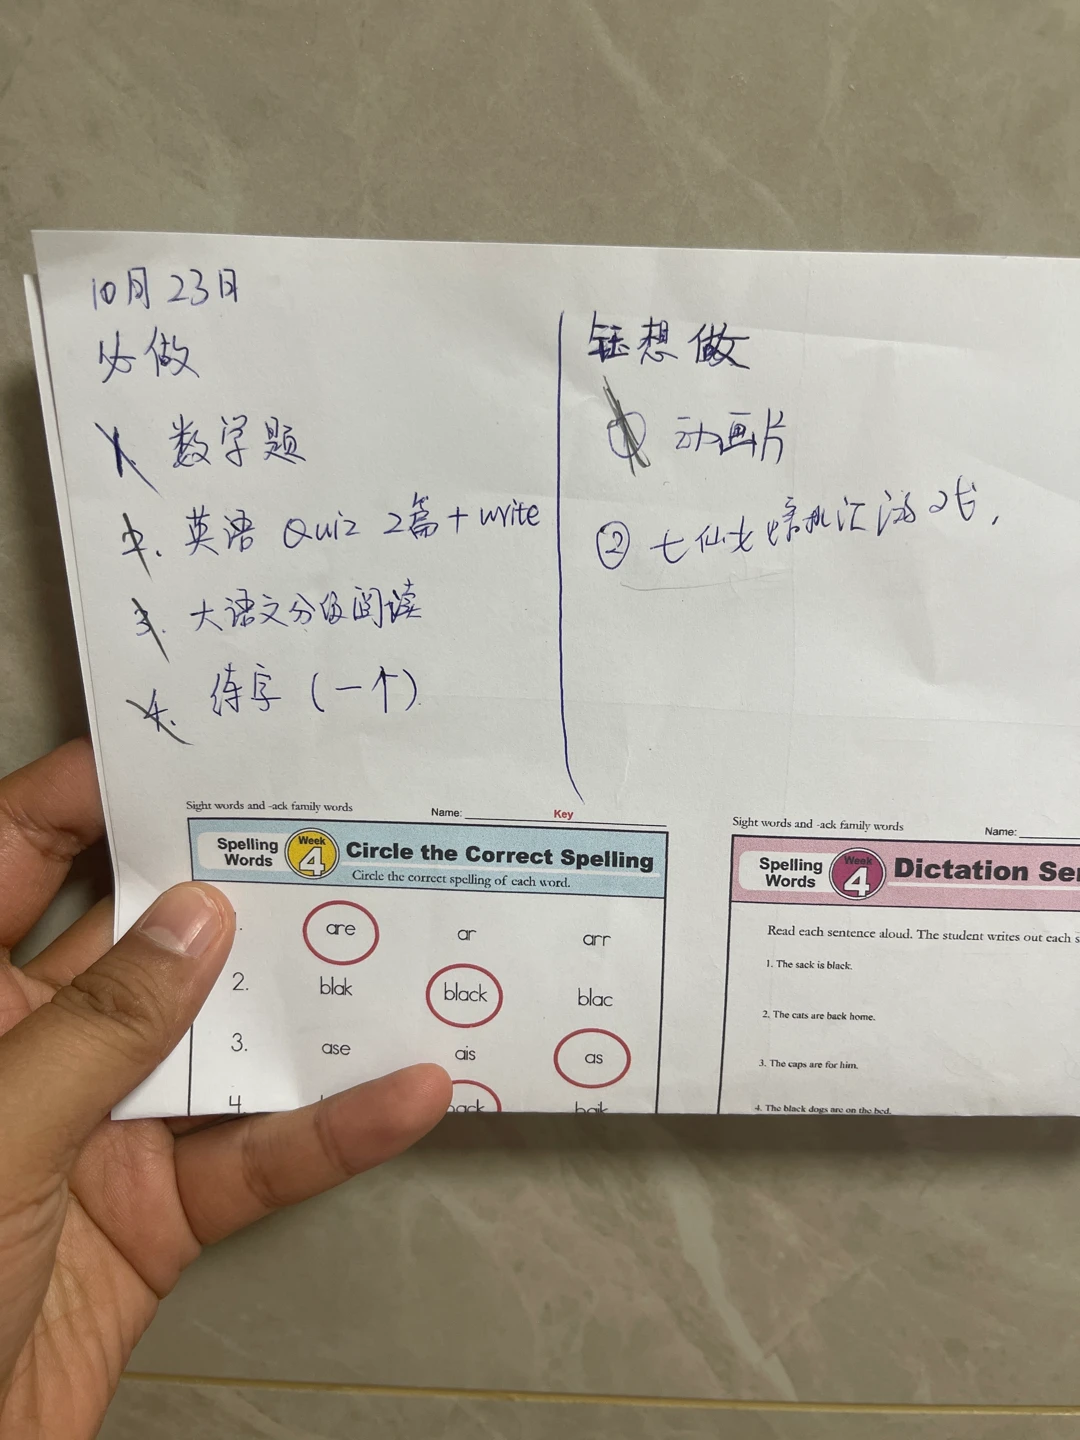 10月23日
必做
1. 数学题
2. 英语 Quiz 2篇+write
3. 大语文分级阅读
4. 练字(一个)
钰想做
① 动画片
② 七仙女
Sight words and -ack family words
Name: Key
Spelling Words
Week 4
Circle the Correct Spelling
Circle the correct spelling of each word.
are ar arr
2. blak black blac
3. ase ais as
4.
Sight words and -ack family words
Name:
Spelling Words
Week 4
Dictation
Read each sentence aloud. The student writes out each
1. The sack is black.
2. The cats are back home.
3. The caps are for him.
4. The black dogs are on the bed.